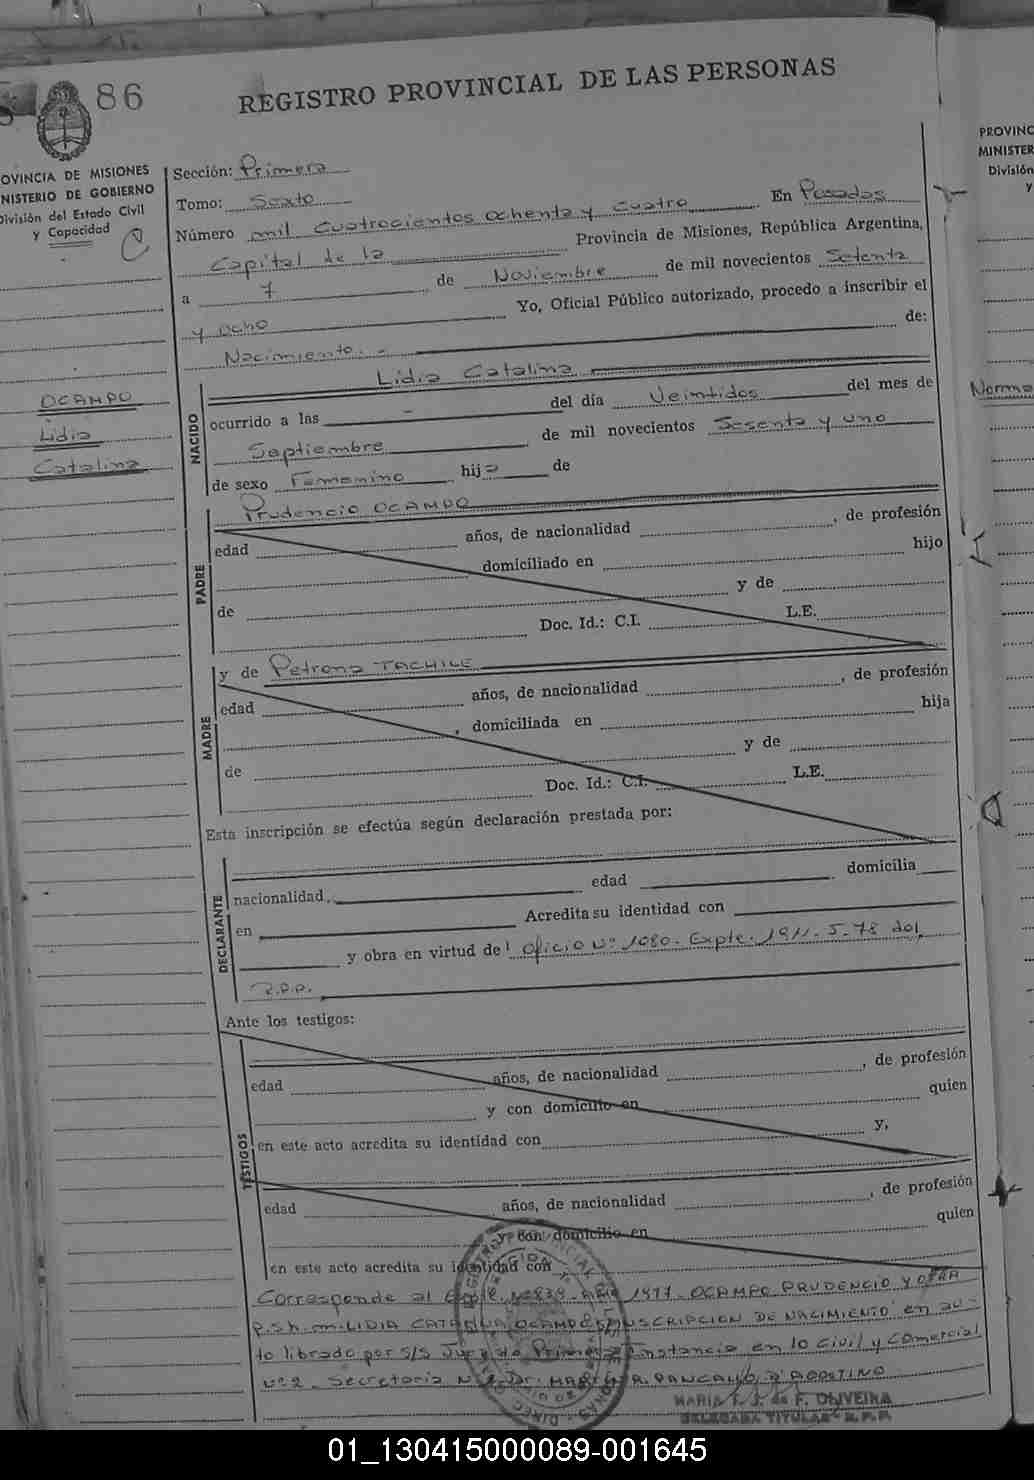 86
REGISTRO PROVINCIAL DE LAS PERSONAS
PROVINCIA DE MISIONES
MINISTERIO DE GOBIERNO
División del Estado Civil
y Capacidad
Sección: Primera
Tomo: Sexto
Número mil cuatrocientos ochenta y cuatro En Posadas
Capital de la Provincia de Misiones, República Argentina,
a 7 de Noviembre de mil novecientos Setenta
y ocho Yo, Oficial Público autorizado, procedo a inscribir el
Nacimiento.- de:
OCAMPO
Lidia
Catalina
NACIDO
Lidia Catalina
ocurrido a las - del día Veintidos del mes de
Septiembre de mil novecientos Sesenta y uno
de sexo Femenino hija de
PADRE
Prudencio OCAMPO
edad años, de nacionalidad , de profesión
domiciliado en hijo
de y de
Doc. Id.: C.I. L.E.
MADRE
y de Petrona TACHILE
edad años, de nacionalidad , de profesión
, domiciliada en hija
de y de
Doc. Id.: C.I. L.E.
Esta inscripción se efectúa según declaración prestada por:
DECLARANTE
nacionalidad, edad domicilia
en Acredita su identidad con
y obra en virtud de Oficio Nº 1080. Expte. 1911.J.78 del
R.P.P.
Ante los testigos:
TESTIGOS
edad años, de nacionalidad , de profesión
y con domicilio en quien
en este acto acredita su identidad con y,
edad años, de nacionalidad , de profesión
y con domicilio en quien
en este acto acredita su identidad con
Corresponde al Expte. Nº 839 Año 1977 OCAMPO PRUDENCIO Y OTRA
p.s.h.m. LIDIA CATALINA OCAMPO INSCRIPCION DE NACIMIENTO en au-
to librado por S/S Juez de Primera Instancia en lo Civil y Comercial
Nº 2. Secretaria D'AGOSTINO
MARIA F. OLIVEIRA
DELEGADA TITULAR R.P.P.
PROVINC
MINISTER
División
y
Norma
01_130415000089-001645